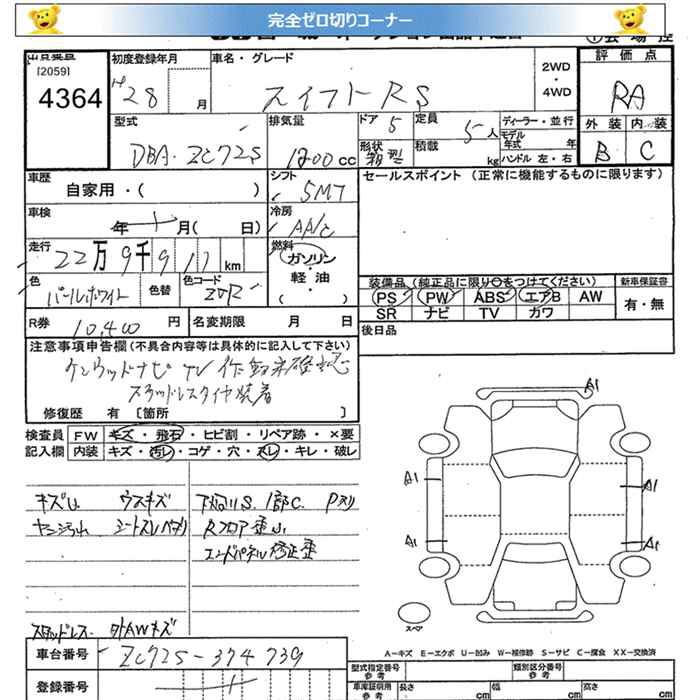 完全ゼロ切りコーナー
[2059]
4364
初度登録年月
H28 月
車名・グレード
スイフト RS
2WD
・
4WD
評価点
RA
外装 内装
B C
型式
DBA-ZC72S
排気量
1200 cc
ドア 5
定員 5 人
形状 箱型
積載 kg
ディーラー・並行
モデル年式 年
ハンドル 左・右
車歴
自家用・( )
シフト
5MT
セールスポイント (正常に機能するものに限ります)
車検
年 月( 日)
冷房
AA/C
走行
22万9千911km
燃料
ガソリン
・
軽油
( )
色
パールホワイト
色替
色コード
ZVR
装備品 (純正品に限り○をつけてください)
新車保証書
PS PW ABS エアB AW
有・無
SR ナビ TV カワ
R券 10,400 円
名変期限 月 日
後日品
注意事項申告欄 (不具合内容等は具体的に記入して下さい)
ケンウッドナビ TV 作動未確認
スタッドレスタイヤ装着
修復歴 有 [箇所 ]
検査員
記入欄
FW キズ・飛石・ヒビ割・リペア跡・×要
内装 キズ・汚レ・コゲ・穴・スレ・キレ・破レ
キズU ウスキズ
下廻りS. 1部C.
シートスレ
Rフロア歪小
エンドパネル修正歪
スタッドレス. 外AWキズ
A1
A1
A1
A1
A1
スペア
A－キズ E－エクボ U－凹み W－補修跡 S－サビ C－腐食 XX－交換済
車台番号 ZC72S-374739
登録番号
型式指定番号
参考
類別区分番号
参考
車庫証明用
参考
長さ cm
幅 cm
高さ cm